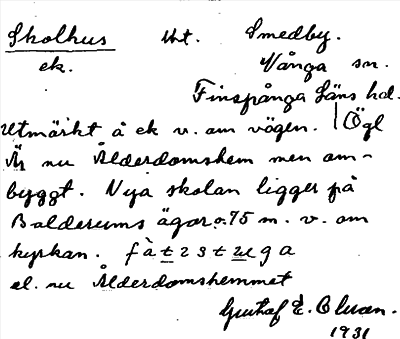 Skolhus Ut. Smedby.
ek. Vånga sn.
Finspånga Läns hd.
Utmärkt å ek v. om vägen. Ögl
Är nu Ålderdomshem men om-
byggt. Nya skolan ligger på
Balderums ägor 0.75 m. v. om
kyrkan.
el. nu Ålderdomshemmet
Gustaf E. Olsson.
1931